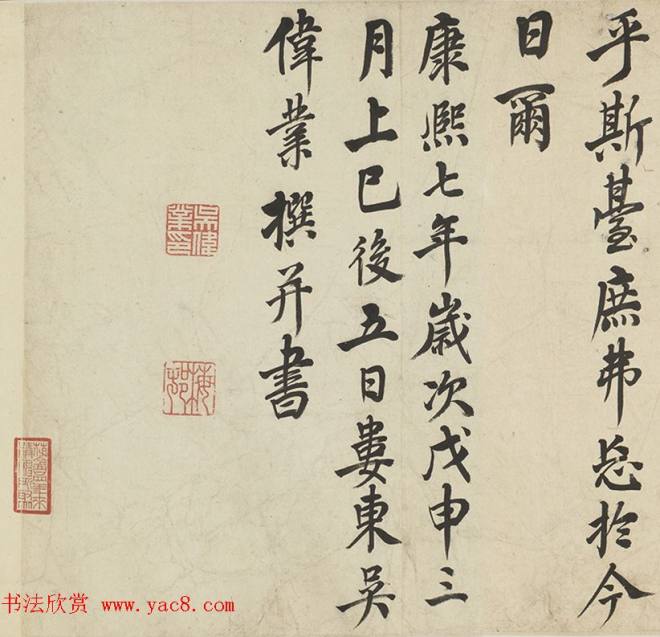 乎斯臺庶弗忘於今
日爾
康熙七年歲次戊申三
月上巳後五日婁東吳
偉業撰并書
吳偉業印
梅邨
书法欣赏 www.yac8.com